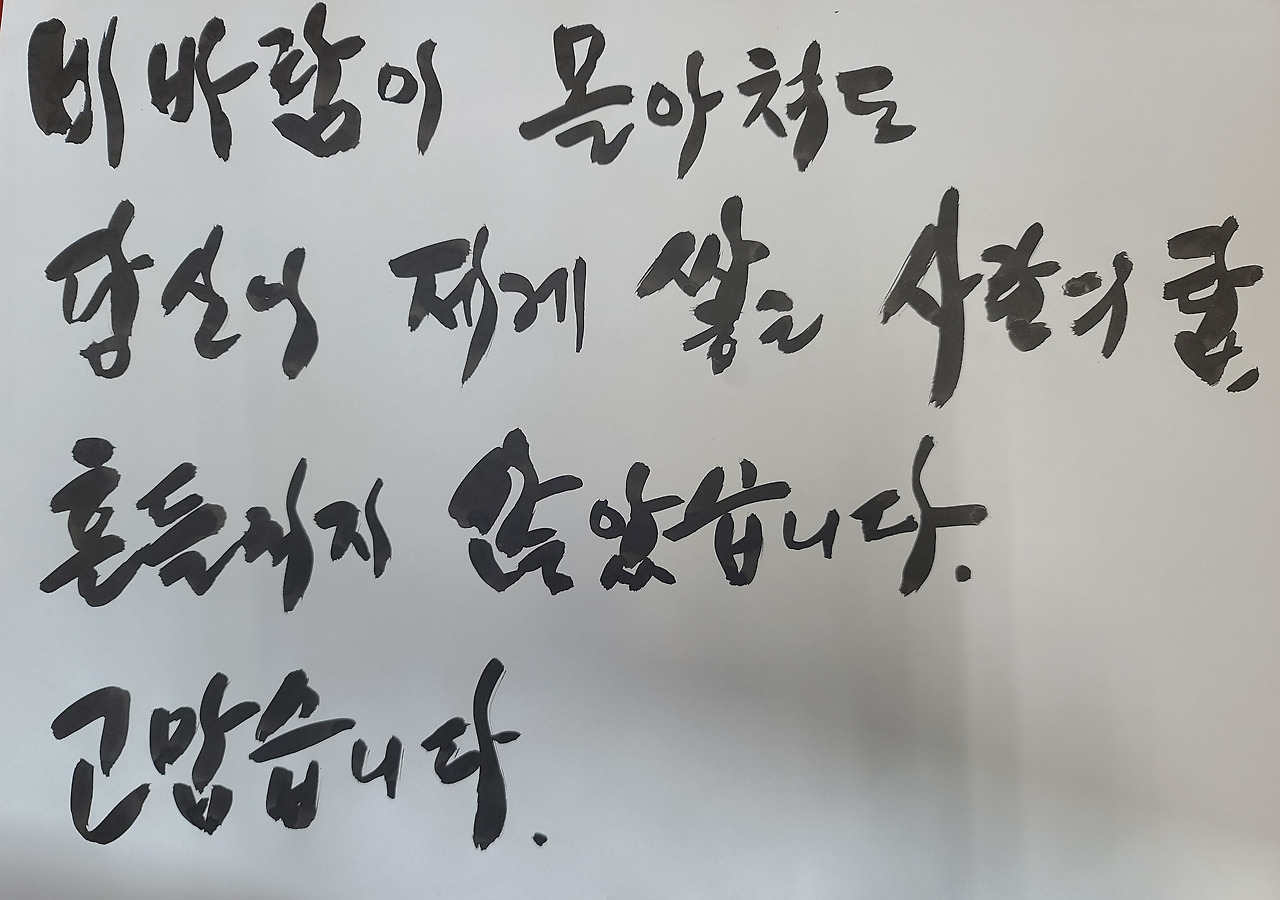 비바람이 몰아쳐도
당신이 제게 쌓은 사랑의 탑,
흔들리지 않았습니다.
고맙습니다.